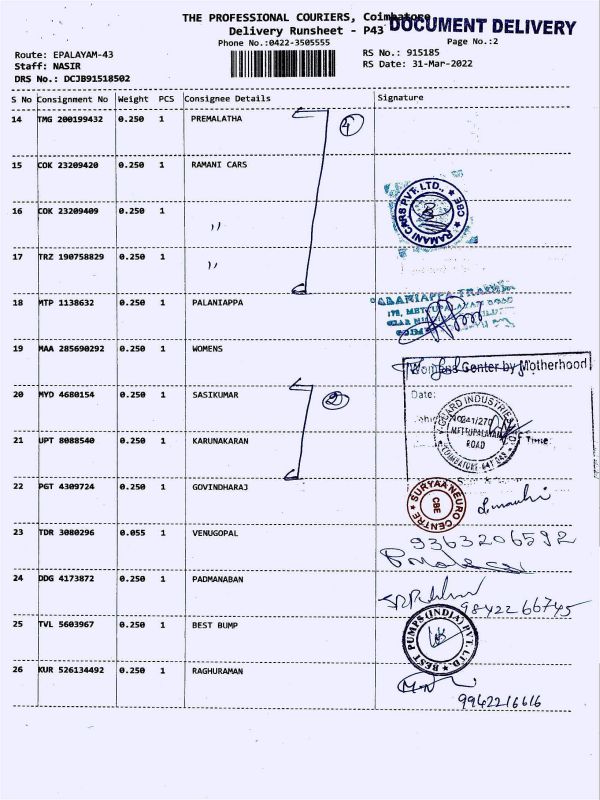 THE PROFESSIONAL COURIERS, Coimbatore,
DOCUMENT DELIVERY
Delivery Runsheet - P43
Phone No.:0422-3505555
Page No.:2
Route: EPALAYAM-43
RS No.: 915185
Staff: NASIR
RS Date: 31-Mar-2022
DRS No.: DCJB91518502
S No Consignment No Weight PCS Consignee Details Signature
14 TMG 200199432 0.250 1 PREMALATHA 4
15 COK 23209420 0.250 1 RAMANI CARS
RAMANI CARS PVT. LTD., ★ CBE ★
16 COK 23209409 0.250 1 ,,
17 TRZ 190758829 0.250 1 ,,
18 MTP 1138632 0.250 1 PALANIAPPA
19 MAA 285690292 0.250 1 WOMENS
Womens Center by Motherhood
20 MYD 4680154 0.250 1 SASIKUMAR 2
Date:
241/270
METTUPALAYAM
ROAD
Time:
21 UPT 8088540 0.250 1 KARUNAKARAN
22 PGT 4309724 0.250 1 GOVINDHARAJ
★ SURYAA NEURO CENTRE ★
CBE
23 TDR 3080296 0.055 1 VENUGOPAL
9363206592
24 DDG 4173872 0.250 1 PADMANABAN
9842266745
25 TVL 5603967 0.250 1 BEST BUMP
BEST PUMPS (INDIA) PVT. LTD. ★
26 KUR 526134492 0.250 1 RAGHURAMAN
9942216616